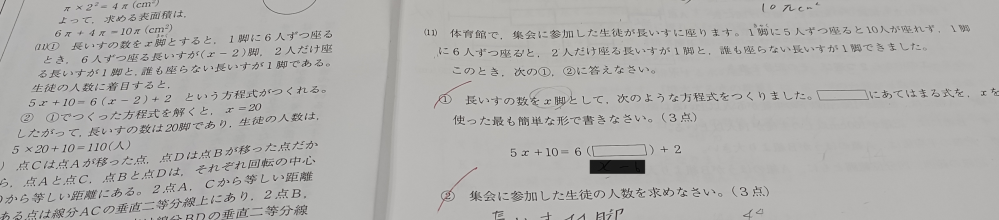 π×2²=4π(cm²)
よって，求める表面積は，
6π+4π=10π(cm²)
(11)① 長いすの数をx脚とすると，1脚に6人ずつ座る
とき，6人ずつ座る長いすが(x-2)脚，2人だけ座
る長いすが1脚と，誰も座らない長いすが1脚である。
生徒の人数に着目すると，
5x+10=6(x-2)+2 という方程式がつくれる。
② ①でつくった方程式を解くと，x=20
したがって，長いすの数は20脚であり，生徒の人数は，
5×20+10=110(人)
) 点Cは点Aが移った点，点Dは点Bが移った点だか
ら，点Aと点C，点Bと点Dは，それぞれ回転の中心
から等しい距離にある。2点A，Cから等しい距離
ある点は線分ACの垂直二等分線上にあり，2点B，
線分BDの垂直二等分線
10πcm²
(11) 体育館で，集会に参加した生徒が長いすに座ります。1脚に5人ずつ座ると10人が座れず，1脚
に6人ずつ座ると，2人だけ座る長いすが1脚と，誰も座らない長いすが1脚できました。
このとき，次の①，②に答えなさい。
① 長いすの数をx脚として，次のような方程式をつくりました。にあてはまる式を，xを
使った最も簡単な形で書きなさい。(3点)
5x+10=6()+2
② 集会に参加した生徒の人数を求めなさい。(3点)